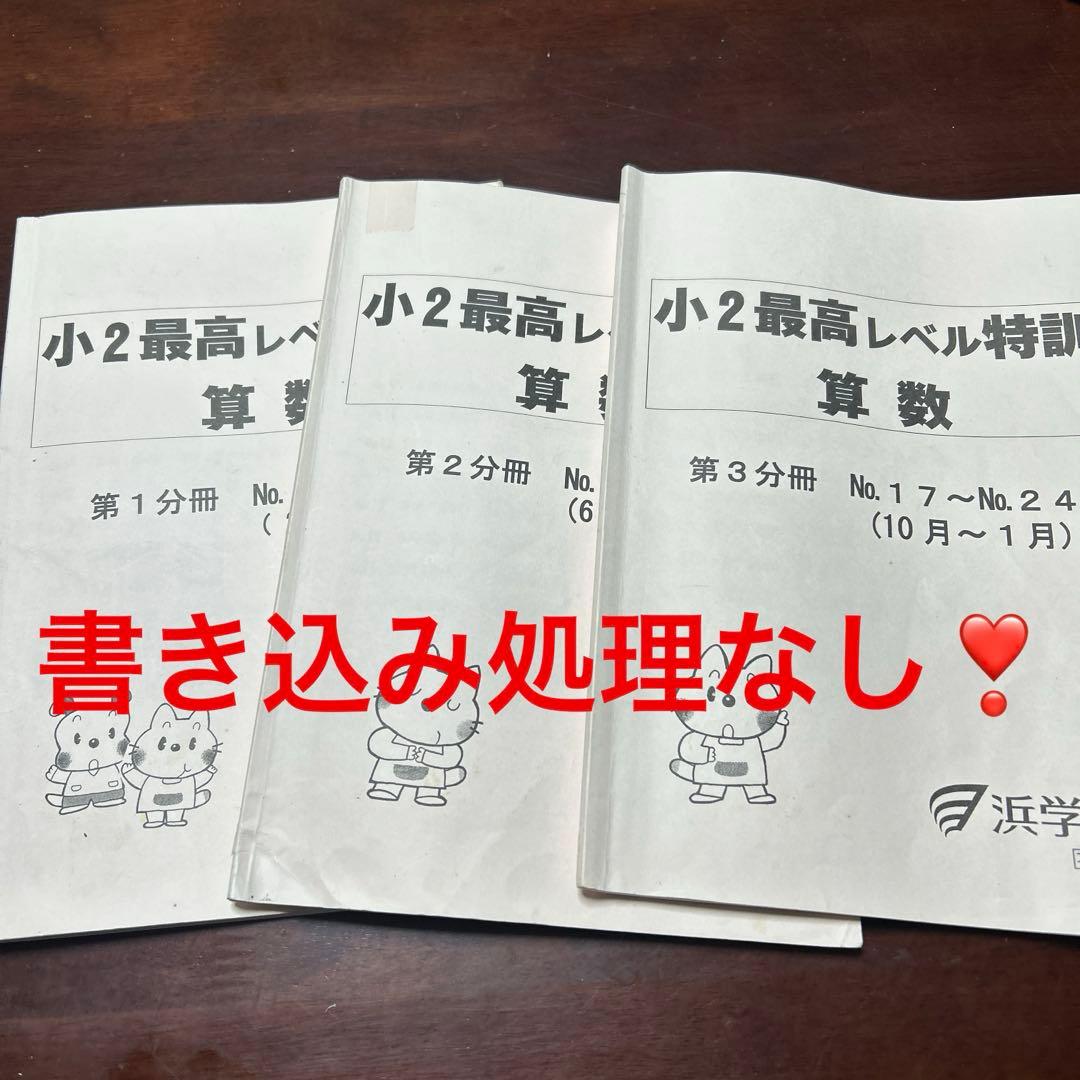 小２最高レベ
算数
第１分冊 No.
(
小２最高レ
算数
第２分冊 No.
(6
小２最高レベル特訓
算数
第３分冊 No.１７～No.２４
(10月～１月)
書き込み処理なし❣️
浜学